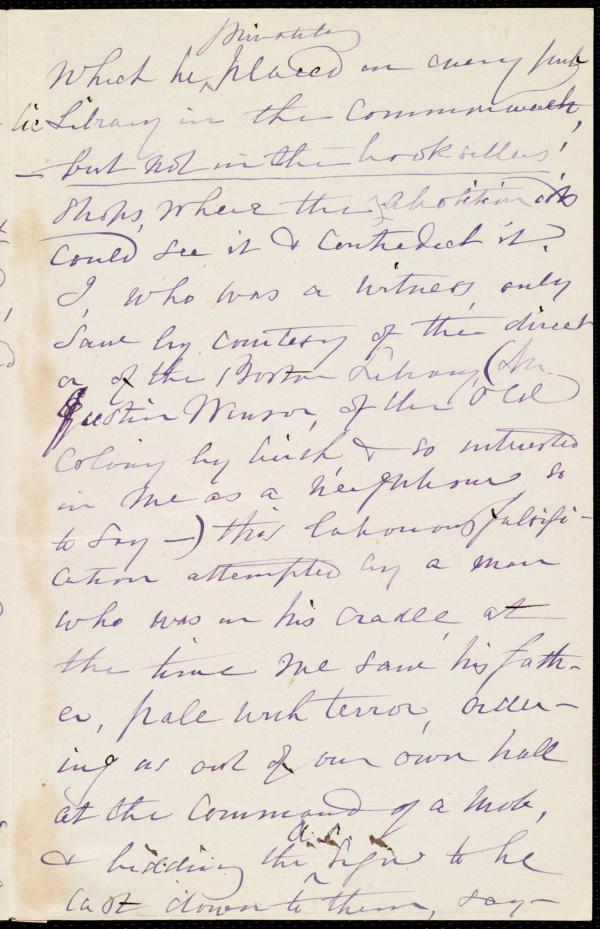 privately
which he ‸ placed in every pub-
lic Library in the Commonwealth,
— but not in the booksellers'
shops, where the abolitionists
could see it & contradict it.
I, who was a witness, only
saw by courtesy of the direct
or of the Boston Library, (
Justin Winsor, of the Old
Colony by birth & so interested
in me as a neighbour so
to say —) this labourous falsifi-
cation attempted by a man
who was in his cradle at
the time we saw his fath-
er, pale with terror, order-
ing us out of our own hall
at the command of a mob,
& bidding the ‸ sign to be
cast down to them, say-